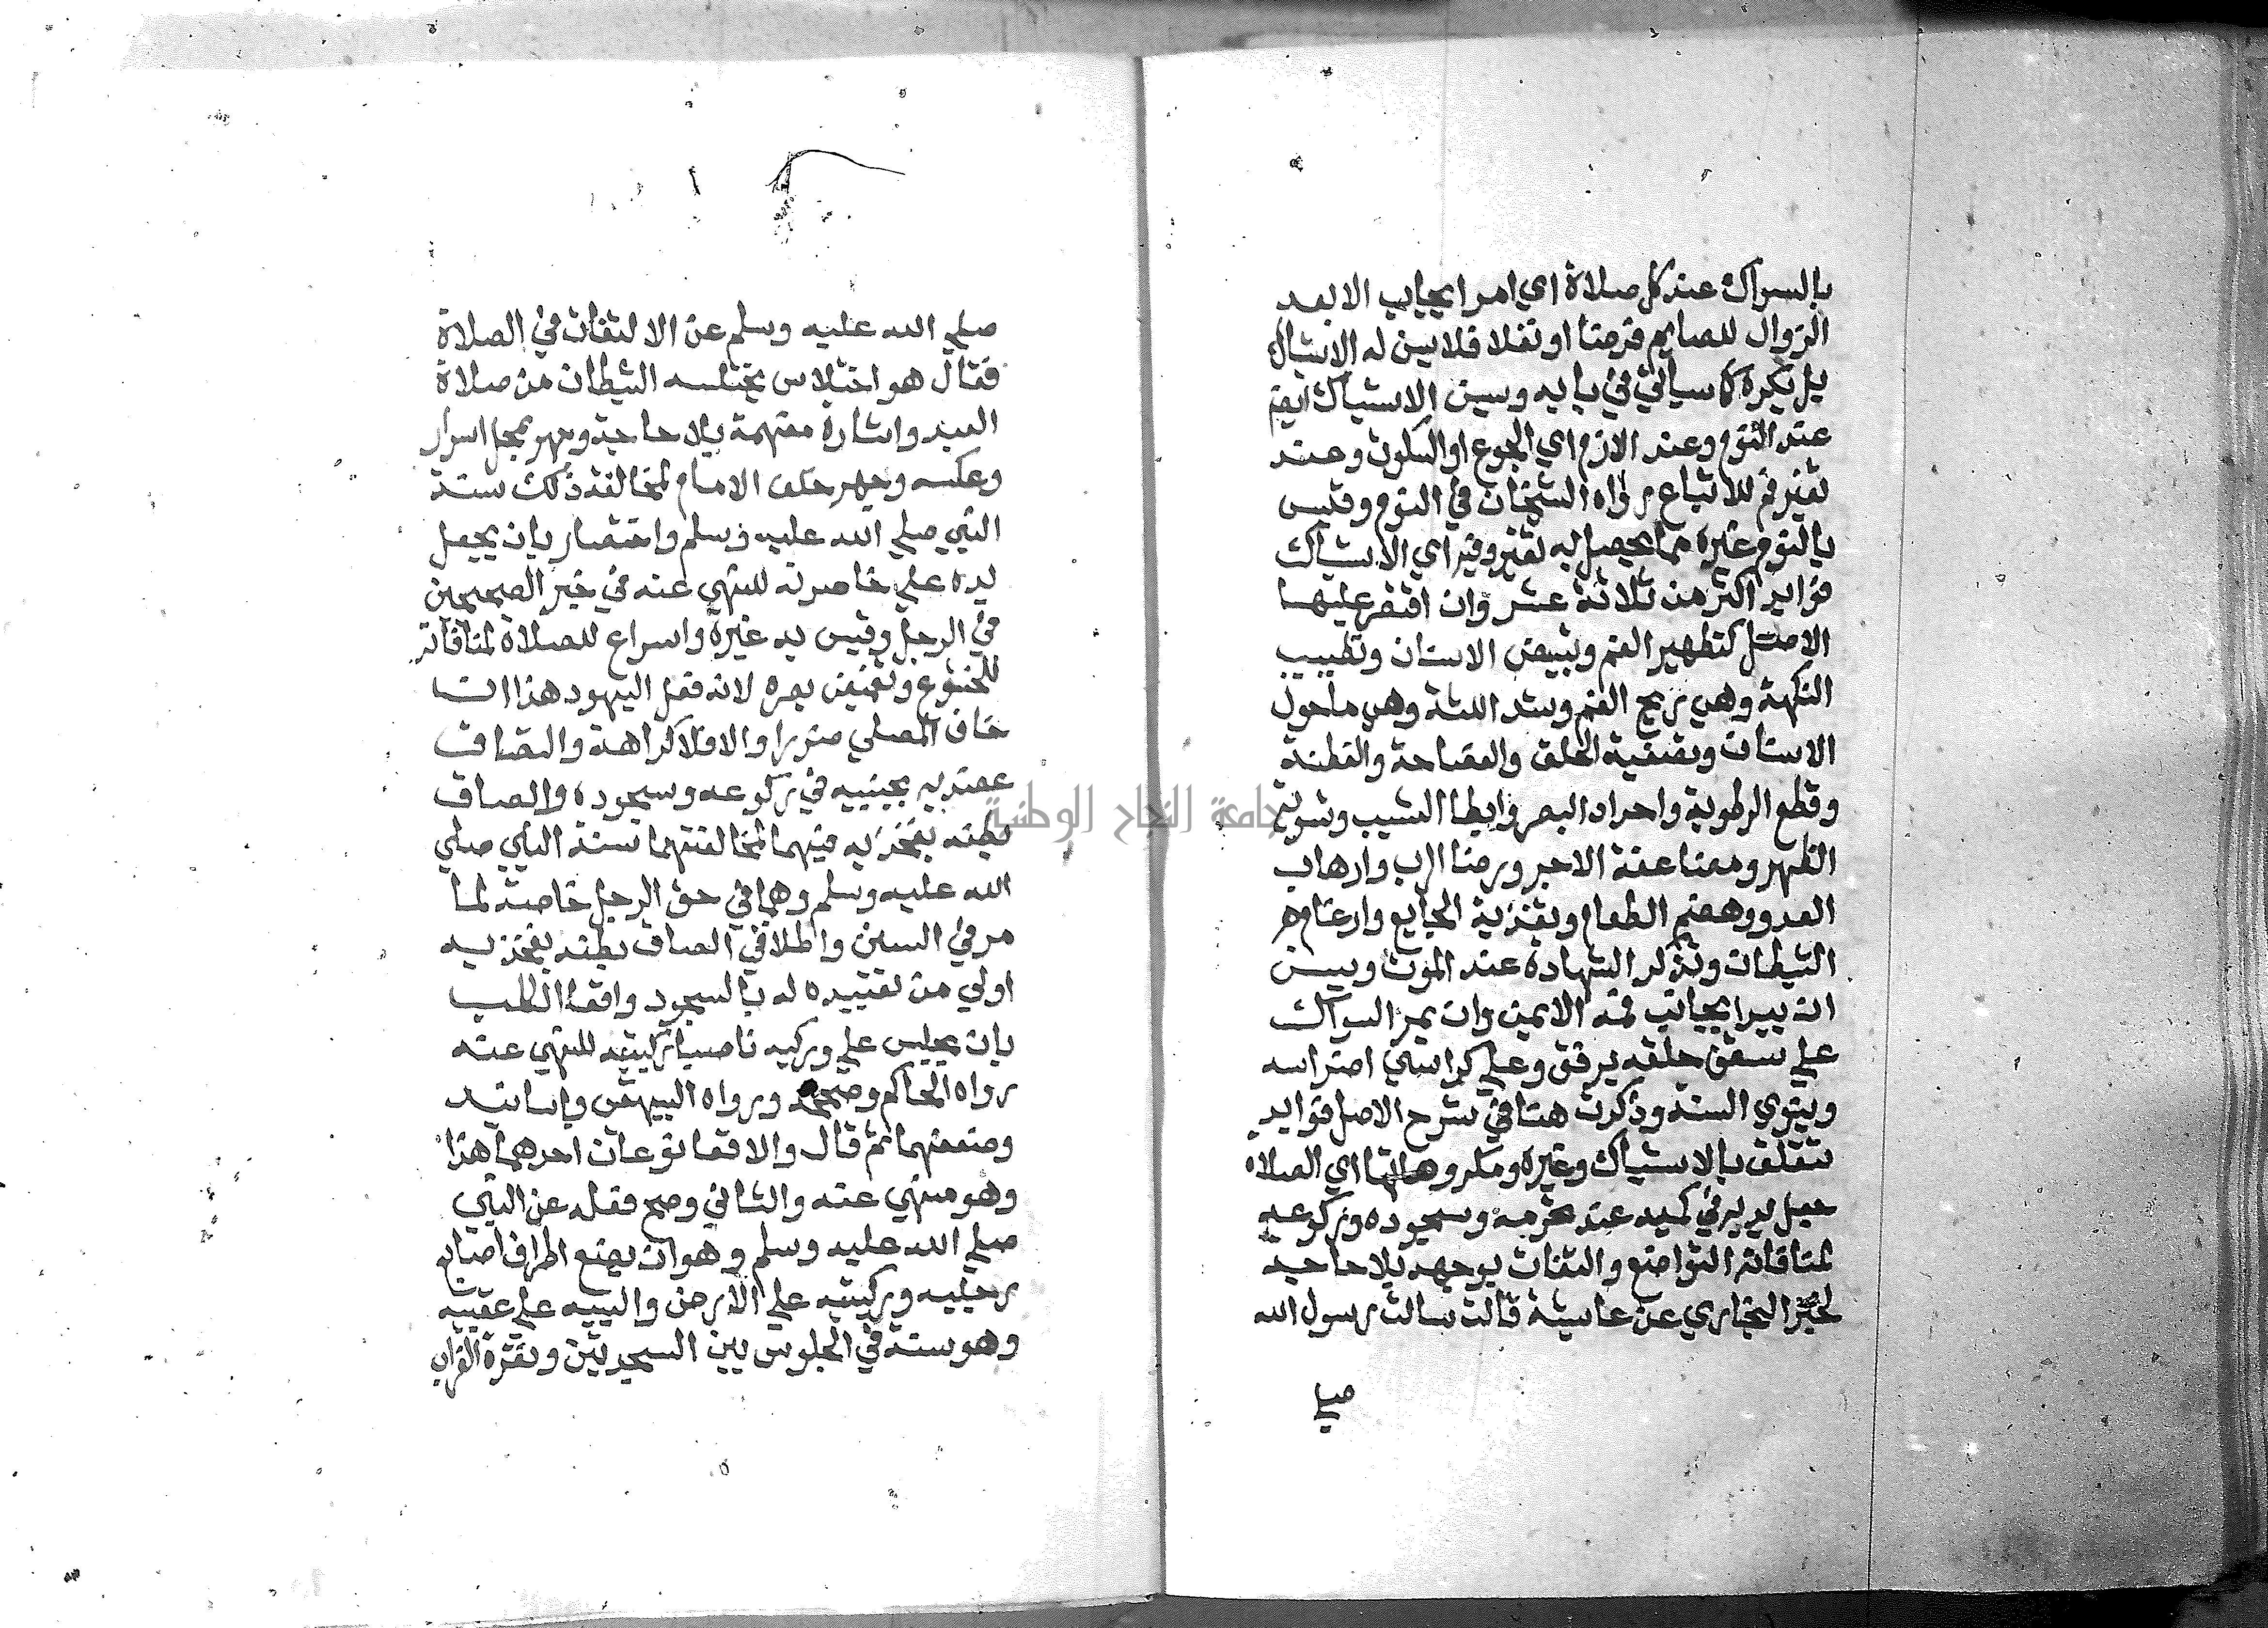 بالسواك عند كل صلاة اي امر ايجاب الا بعد
الزوال للصايم فرضا او نفلا فلا يسن له الاستياك
بل يكره كما سياتي في بابه وسن الاستياك ايضا
عند النوم وعند الازم اي الجوع او السكوت وعند
تغير فم للاتباع رواه الشيخان في النوم وقيس
بالنوم غيره مما يحصل به تغير وفيه اي الاستياك
فوايد اكثر من ثلاثة عشر وان اقتصر عليها
الاصل كتطهير الفم وتبييض الاسنان وتطييب
النكهة وهي ريح الفم وشد اللثة وهي ما حول
الاسنان وتصفية الحلق والفصاحة والفطنة
وقطع الرطوبة واحداد البصر وابطا الشيب وتسوية
الظهر ومضاعفة الاجر ورضا الرب وارهاب
العدو وهضم الطعام وتغذية الجايع وارغام
الشيطان وتذكر الشهادة عند الموت ويسن
ان يبدا بجانب فمه الايمن وان يمر السواك
علي سقف حلقه برفق وعلي كراسي اضراسه
وينوي السنة وذكرت هنا في شرح الاصل فوايد
تتعلق بالاستياك وغيره ومكروهاتها اي الصلاة
جعل يديه في كميه عند تحرمه وسجوده وركوعه
لمنافاته التواضع والتفات بوجهه بلا حاجة
لخبر البخاري عن عايشة قالت سالت رسول الله
صلي
صلي الله عليه وسلم عن الالتفات في الصلاة
فقال هو اختلاس يختلسه الشيطان من صلاة
العبد واشارة مفهمة بلا حاجة وجهر بمحل اسرار
وعكسه وجهر خلف الامام لمخالفة ذلك سنة
النبي صلي الله عليه وسلم واختصار بان يجعل
يده علي خاصرته للنهي عنه في خبر الصحيحين
في الرجل وقيس به غيره واسراع للصلاة لمنافاته
للخشوع وتغميض بصره لانه فعل اليهود هذا ان
خاف المصلي ضررا والا فلا كراهة والصاق
عضديه بجنبيه في ركوعه وسجوده والصاق
بطنه بفخذيه فيهما لمخالفتهما سنة النبي صلي
الله عليه وسلم وهما في حق الرجل خاصة لما
مر في السنن واطلاقي الصاق بطنه بفخذيه
اولي من تقييده له بالسجود واقعا الكلب
بان يجلس علي وركيه ناصبا ركبتيه للنهي عنه
رواه الحاكم وصححه ورواه البيهقي باسانيد
وضعفهما ثم قال والاقعا نوعان احدهما هذا
وهو منهي عنه والثاني وصح فعله عن النبي
صلي الله عليه وسلم وهو ان يضع اطراف اصابع
رجليه وركبتيه علي الارض واليتيه علي عقبيه
وهو سنة في الجلوس بين السجدتين ونقرة الغراب
جامعة النجاح الوطنية